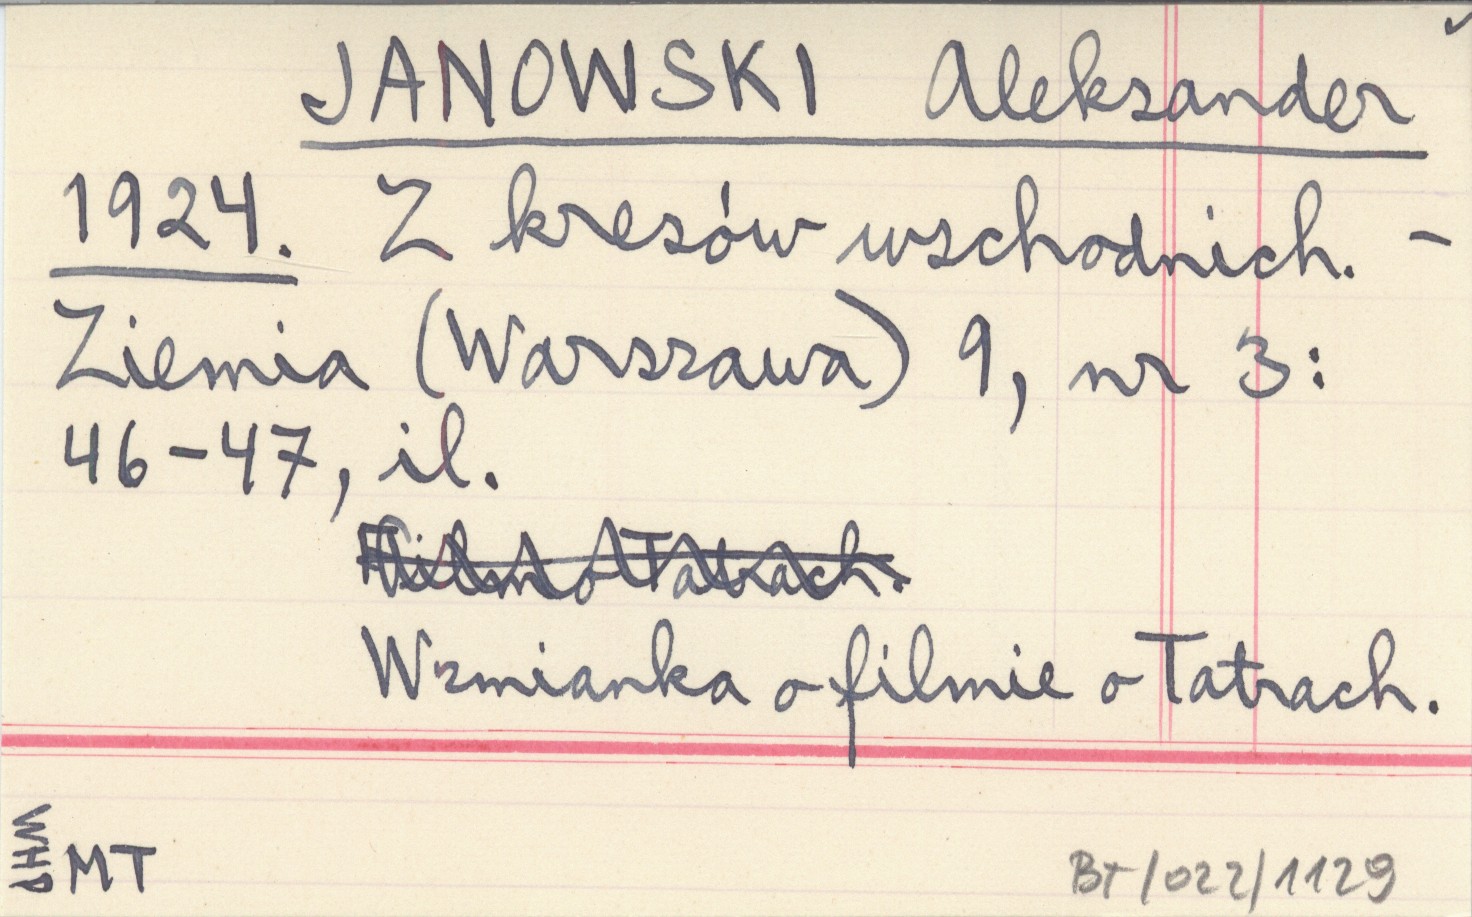 JANOWSKI Aleksander
1924. Z kresów wschodnich. -
Ziemia (Warszawa) 9, nr 3:
46-47, il.
Film o Tatrach.
Wzmianka o filmie o Tatrach.
WHP
MT
BT/022/1129